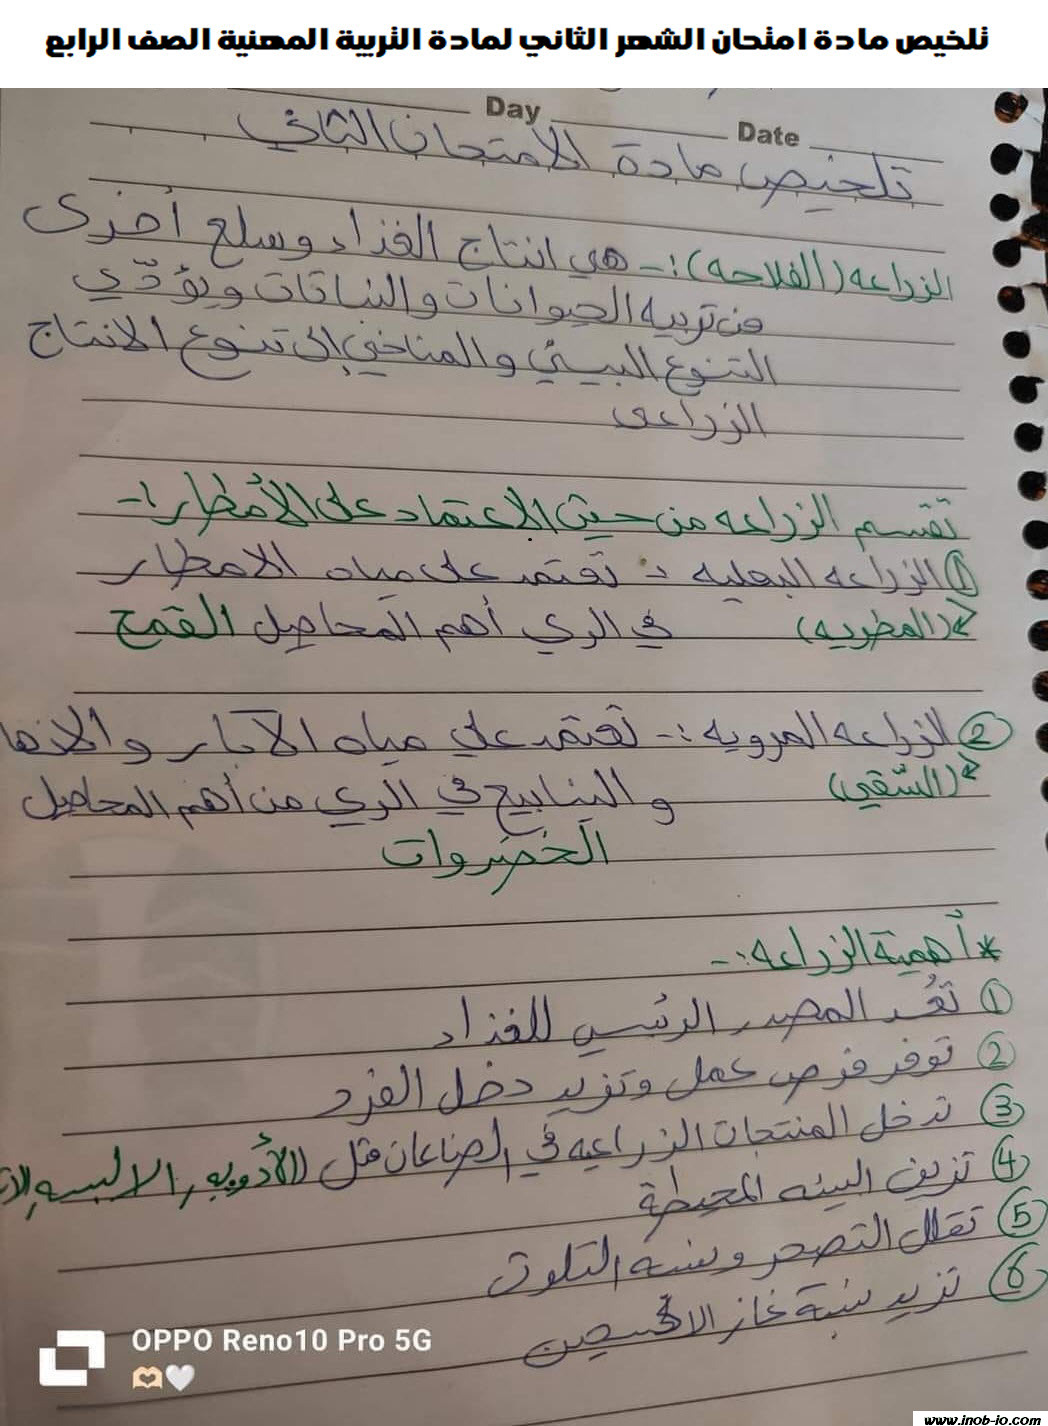 تلخيص مادة امتحان الشهر الثاني لمادة التربية المهنية الصف الرابع
Day
Date
تلخيص مادة الامتحان الثاني
الزراعه (الفلاحه) :- هي انتاج الغذاء وسلع أخرى
من تربيه الحيوانات والنباتات ويؤدّي
التنوع البيئي والمناخي إلى تنوع الانتاج
الزراعي
تقسم الزراعه من حيث الاعتماد على الأمطار :-
① الزراعه البعليه :- تعتمد على مياه الامطار
(المطريه) في الري أهم المحاصيل القمح
② الزراعه المرويه :- تعتمد على مياه الآبار والانها
(السّقي) و الينابيع في الري من أهم المحاصيل
الخضروات
* أهمية الزراعه :-
① تُعد المصدر الرئيسي للغذاء
② توفر فرص عمل وتزيد دخل الفرد
③ تدخل المنتجات الزراعيه في الصناعات مثل (الأدويه , الالبسه
④ تزين البيئه المحيطة
⑤ تقلل التصحر ونسبه التلوث
⑥ تزيد نسبة غاز الاكسجين
OPPO Reno10 Pro 5G
www.inob-io.com